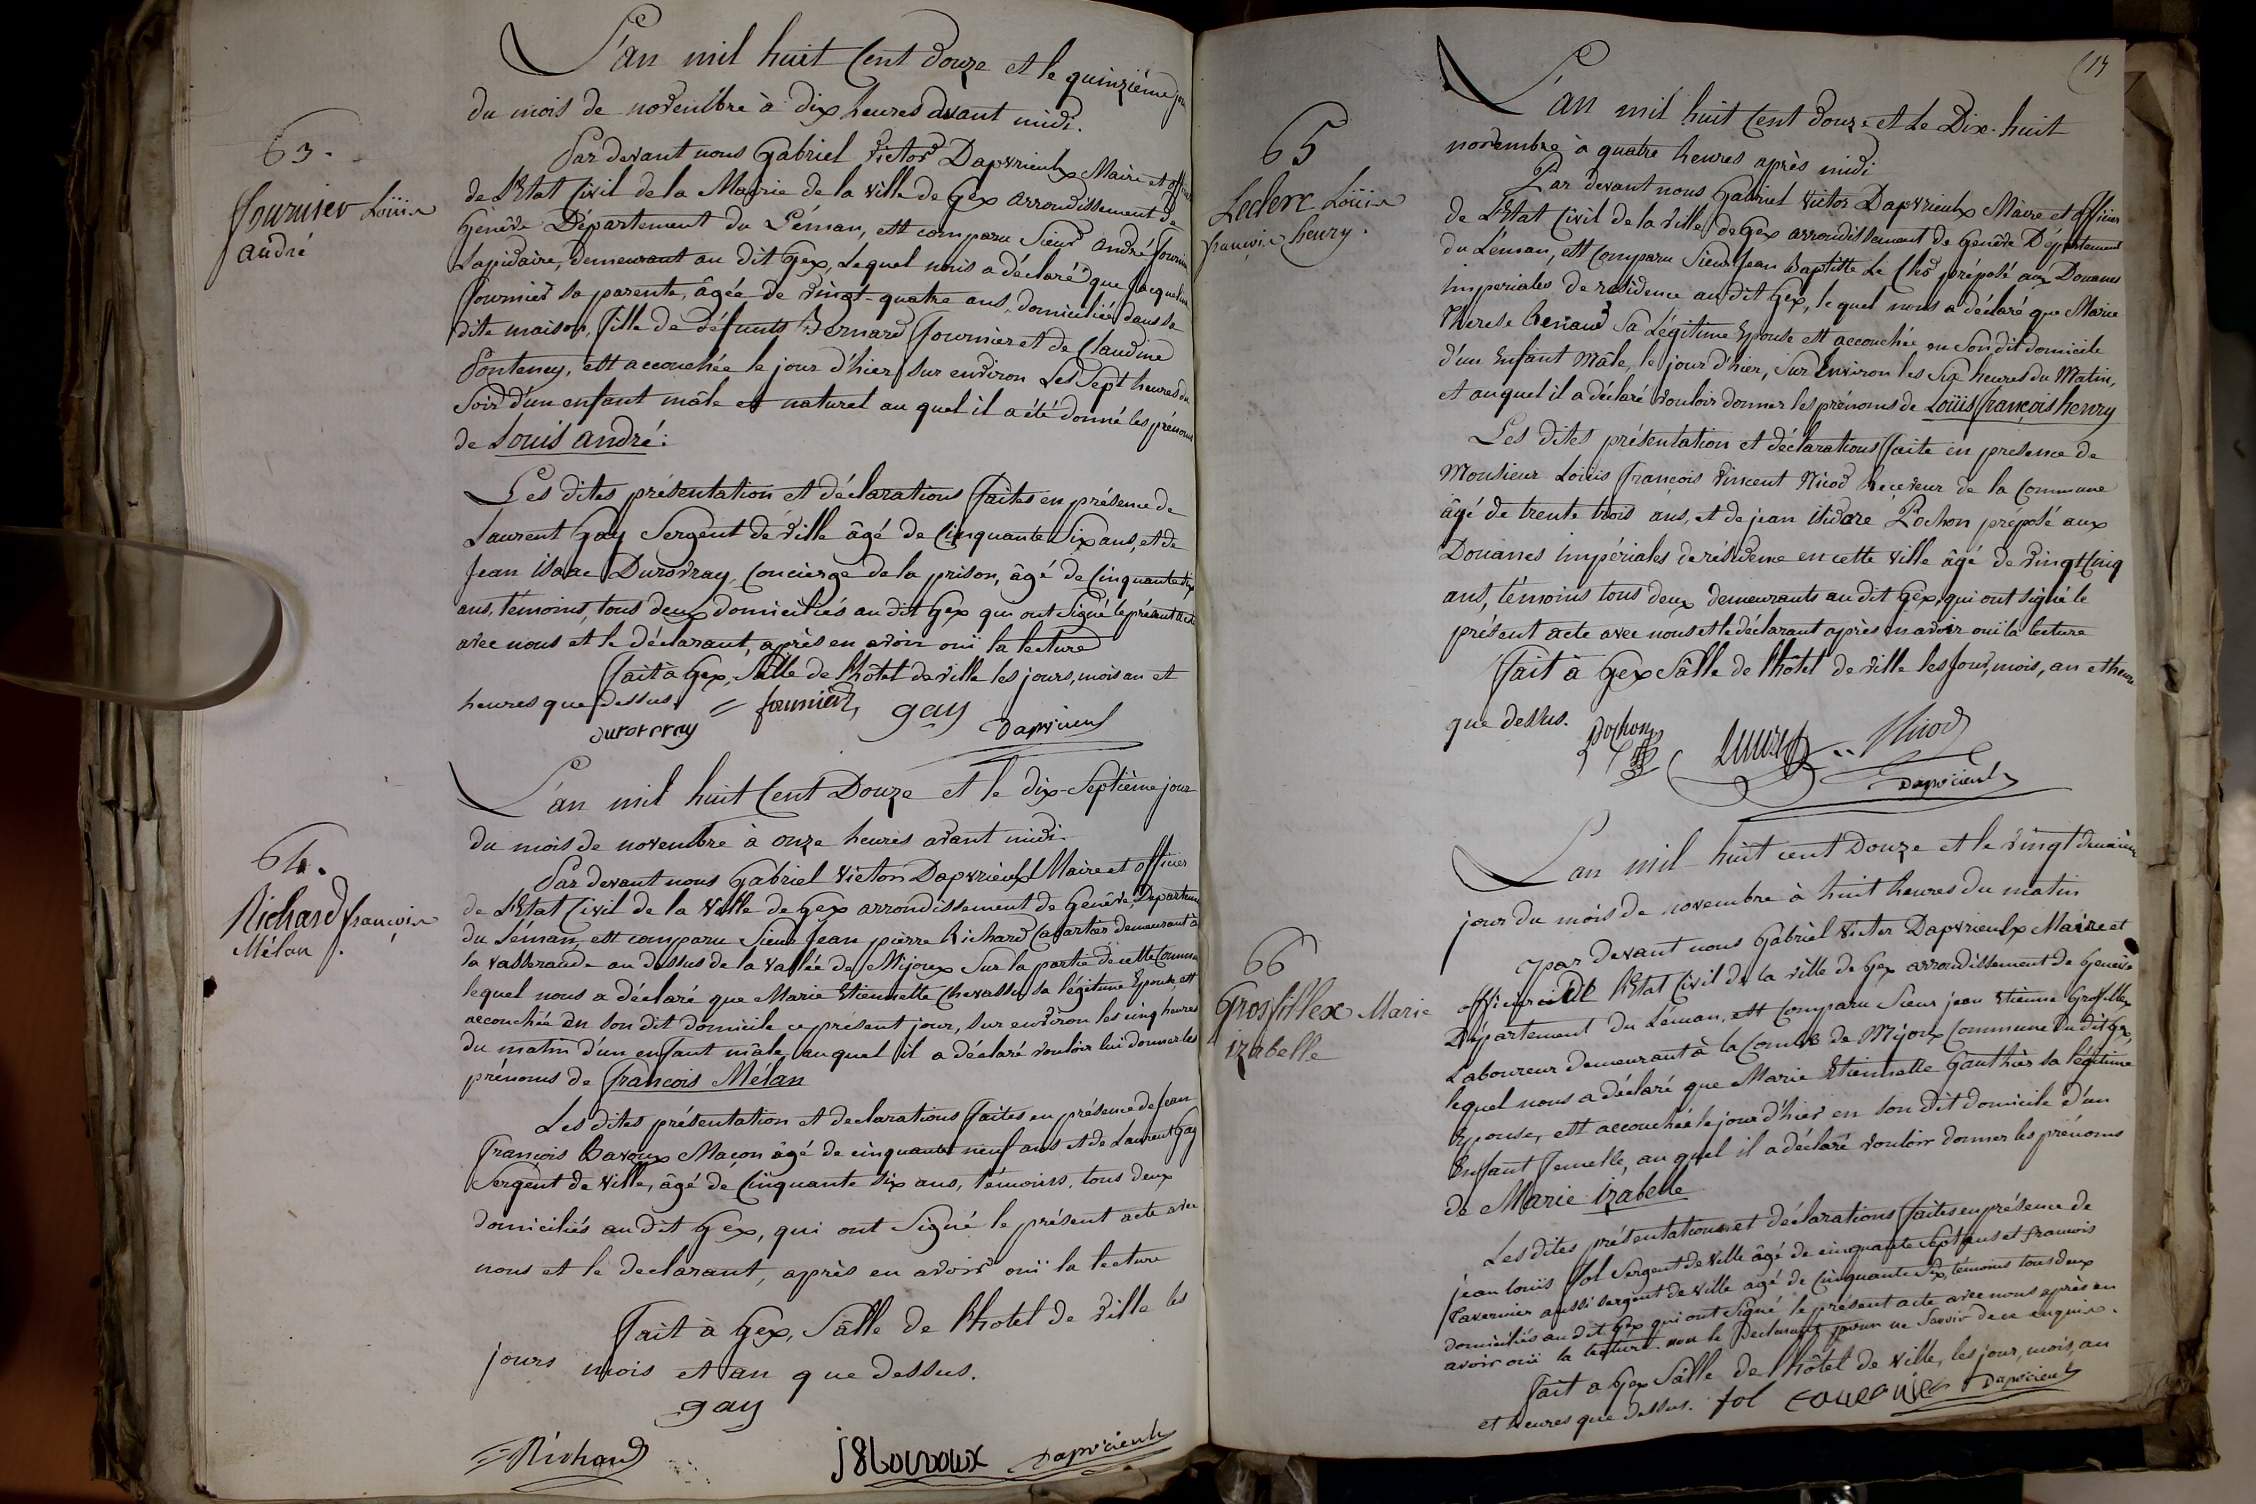 L'an mil huit Cent douze et le quinzième jour
du mois de novembre à dix heures avant midi.
63.
Fournier Loüis
andré
Par devant nous Gabriel victor Dapvrieulx Maire et officier
de l'Etat Civil de la Mairie de la ville de Gex arrondissement de
Genêve Département du Léman, est comparu Sieur andré fournier
Lapidaire, demeurant au dit Gex, Lequel nous a déclaré que Jacqueline
fournier sa parente, âgée de vingt-quatre ans, domiciliée dans sa
dite maison, fille de défunts Bernard fournier et de Claudine
Ponteney, est accouchée le jour d'hier sur environ Les Sept heures du
Soir d'un enfant mâle et naturel au quel il a été donné les prénoms
de Louis andré.
Les dites présentation et déclarations faites en présence de
Laurent Gay Sergent de ville âgé de Cinquante Six ans, et de
Jean isaac Durovray, Concierge de la prison, âgé de Cinquante six
ans, témoins, tous deux domiciliés au dit Gex qui ont Signé le présent acte
avec nous et le déclarant, après en avoir oui la lecture
fait à Gex, Salle de l'hôtel de ville les jours, mois an et
heures que dessus.
durovray = fournier, gay Dapvrieulx
L'an mil huit Cent Douze et le dix-Septième jour
du mois de novembre à onze heures avant midi.
64.
Richard françois
Mélan
Par devant nous Gabriel Victor Dapvrieulx Maire et officier
de l'Etat Civil de la Ville de Gex arrondissement de Genêve, Département
du Léman, est comparu Sieur Jean pierre Richard Cabartier demeurant à
la valserande au dessus de la vallée de Mijoux Sur la partie de cette Commune
lequel nous a déclaré que Marie Etiennette Chevassu sa légitime Epouse est
accouchée en son dit domicile ce présent jour, sur environ les cinq heures
du matin d'un enfant mâle, auquel il a déclaré vouloir lui donner les
prénoms de françois Mélan
Les dites présentation et declarations faites en présence de Jean
François Bavoux Maçon âgé de cinquante neuf ans et de Laurent Gay
Sergent de Ville, âgé de Cinquante Six ans, témoins, tous deux
domiciliés au dit Gex, qui ont Signé le présent acte avec
nous et le declarant, après en avoir oui la lecture
Fait à Gex, Salle de l'hotel de ville les
jours mois et an que dessus.
gay
Richard JfBavoux Dapvrieulx
L'an mil huit Cent douze et Le Dix-huit
novembre à quatre heures après midi
65
Leclerc Loüis
françois henry.
Par devant nous Gabriel Victor Dapvrieulx Maire et officier
de L'Etat Civil de la ville de Gex arrondissement de Genêve Département
du Léman, est Comparu Sieur Jean Baptiste Le Clerc préposé aux Douanes
impériales de residence au dit Gex, lequel nous a déclaré que Marie
Therese Renaud Sa Légitime Epouse est accouchée en Son dit domicile
d'un Enfant Mâle, le jour d'hier, Sur Environ les Six heures du Matin,
et auquel il a déclaré vouloir donner les prénoms de Loüis françois henry
Les dites présentation et déclarations faite en presence de
Monsieur Loüis françois Vincent Nicod Receveur de la Commune
âgé de trente trois ans, et de jean isidore Pochon préposé aux
Douanes impériales de résidence en cette ville âgé de vingt Cinq
ans, témoins tous deux demeurants au dit Gex, qui ont signé le
présent acte avec nous et le déclarant après en avoir oui la lecture
fait à Gex Sâlle de l'hôtel de ville les jour, mois, an et heure
que dessus. Pochon Nicod
Dapvrieulx
L'an mil huit cent Douze et le vingt deuxième
jour du mois de novembre à huit heures du matin
66
Grosfillex Marie
izabelle
par devant nous Gabriel Victor Dapvrieulx Maire et
officier de l'Etat Civil de la ville de Gex arrondissement de Geneve
Département du Léman, est Comparu Sieur jean Etienne Grosfillex
Laboureur demeurant à la Combe de Mijoux Commune du dit Gex,
lequel nous a déclaré que Marie Etiennette Gauthier sa légitime
Epouse, est accouchée le jour d'hier en son dit domicile d'un
Enfant femelle, au quel il a déclaré vouloir donner les prénoms
de Marie izabelle
Les dites présentation et déclarations faites en présence de
jean louis fol Sergent de Ville âgé de cinquante Sept ans et francois
Tavernier aussi sergent de Ville agé de Cinquante Six, témoins tous deux
domiciliés au dit Gex qui ont signé le présent acte avec nous après en
avoir oui la lecture. non le Declarant pour ne Savoir de ce enquis.
fait à Gex Sâlle de l'hôtel de Ville, les jour, mois, an
et heures que dessus. fol tavernier Dapvrieulx